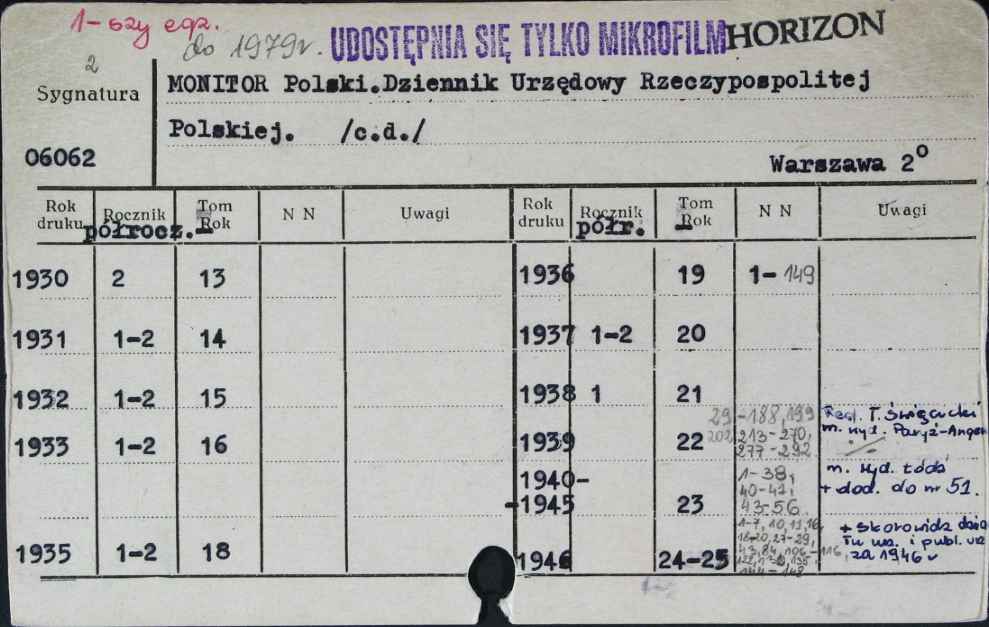 1-szy egz.
do 1979r.
UDOSTĘPNIA SIĘ TYLKO MIKROFILM
HORIZON
2
Sygnatura
06062
MONITOR Polski.Dziennik Urzędowy Rzeczypospolitej
Polskiej. /c.d./
Warszawa 2o
Rok druku Rocznik półrocz. Tom Rok N N Uwagi
1930 2 13
1931 1-2 14
1932 1-2 15
1933 1-2 16
1935 1-2 18
Rok druku Rocznik półr. Tom Rok N N Uwagi
1936 19 1- 149
1937 1-2 20
1938 1 21
1939 22
29-188, 199
202, 213-270,
277-292
Red. T. Święcicki
m. wyd. Paryż-Angers
1940-
-1945 23
1-38,
40-47,
43-56
m. wyd. Łódź
+ dod. do nr 51.
1946 24-25
1-7, 10, 11, 16,
18-20, 27-29,
43, 84, 106-116
144 - 148
+ skorowidz
i publ.
za 1946 r